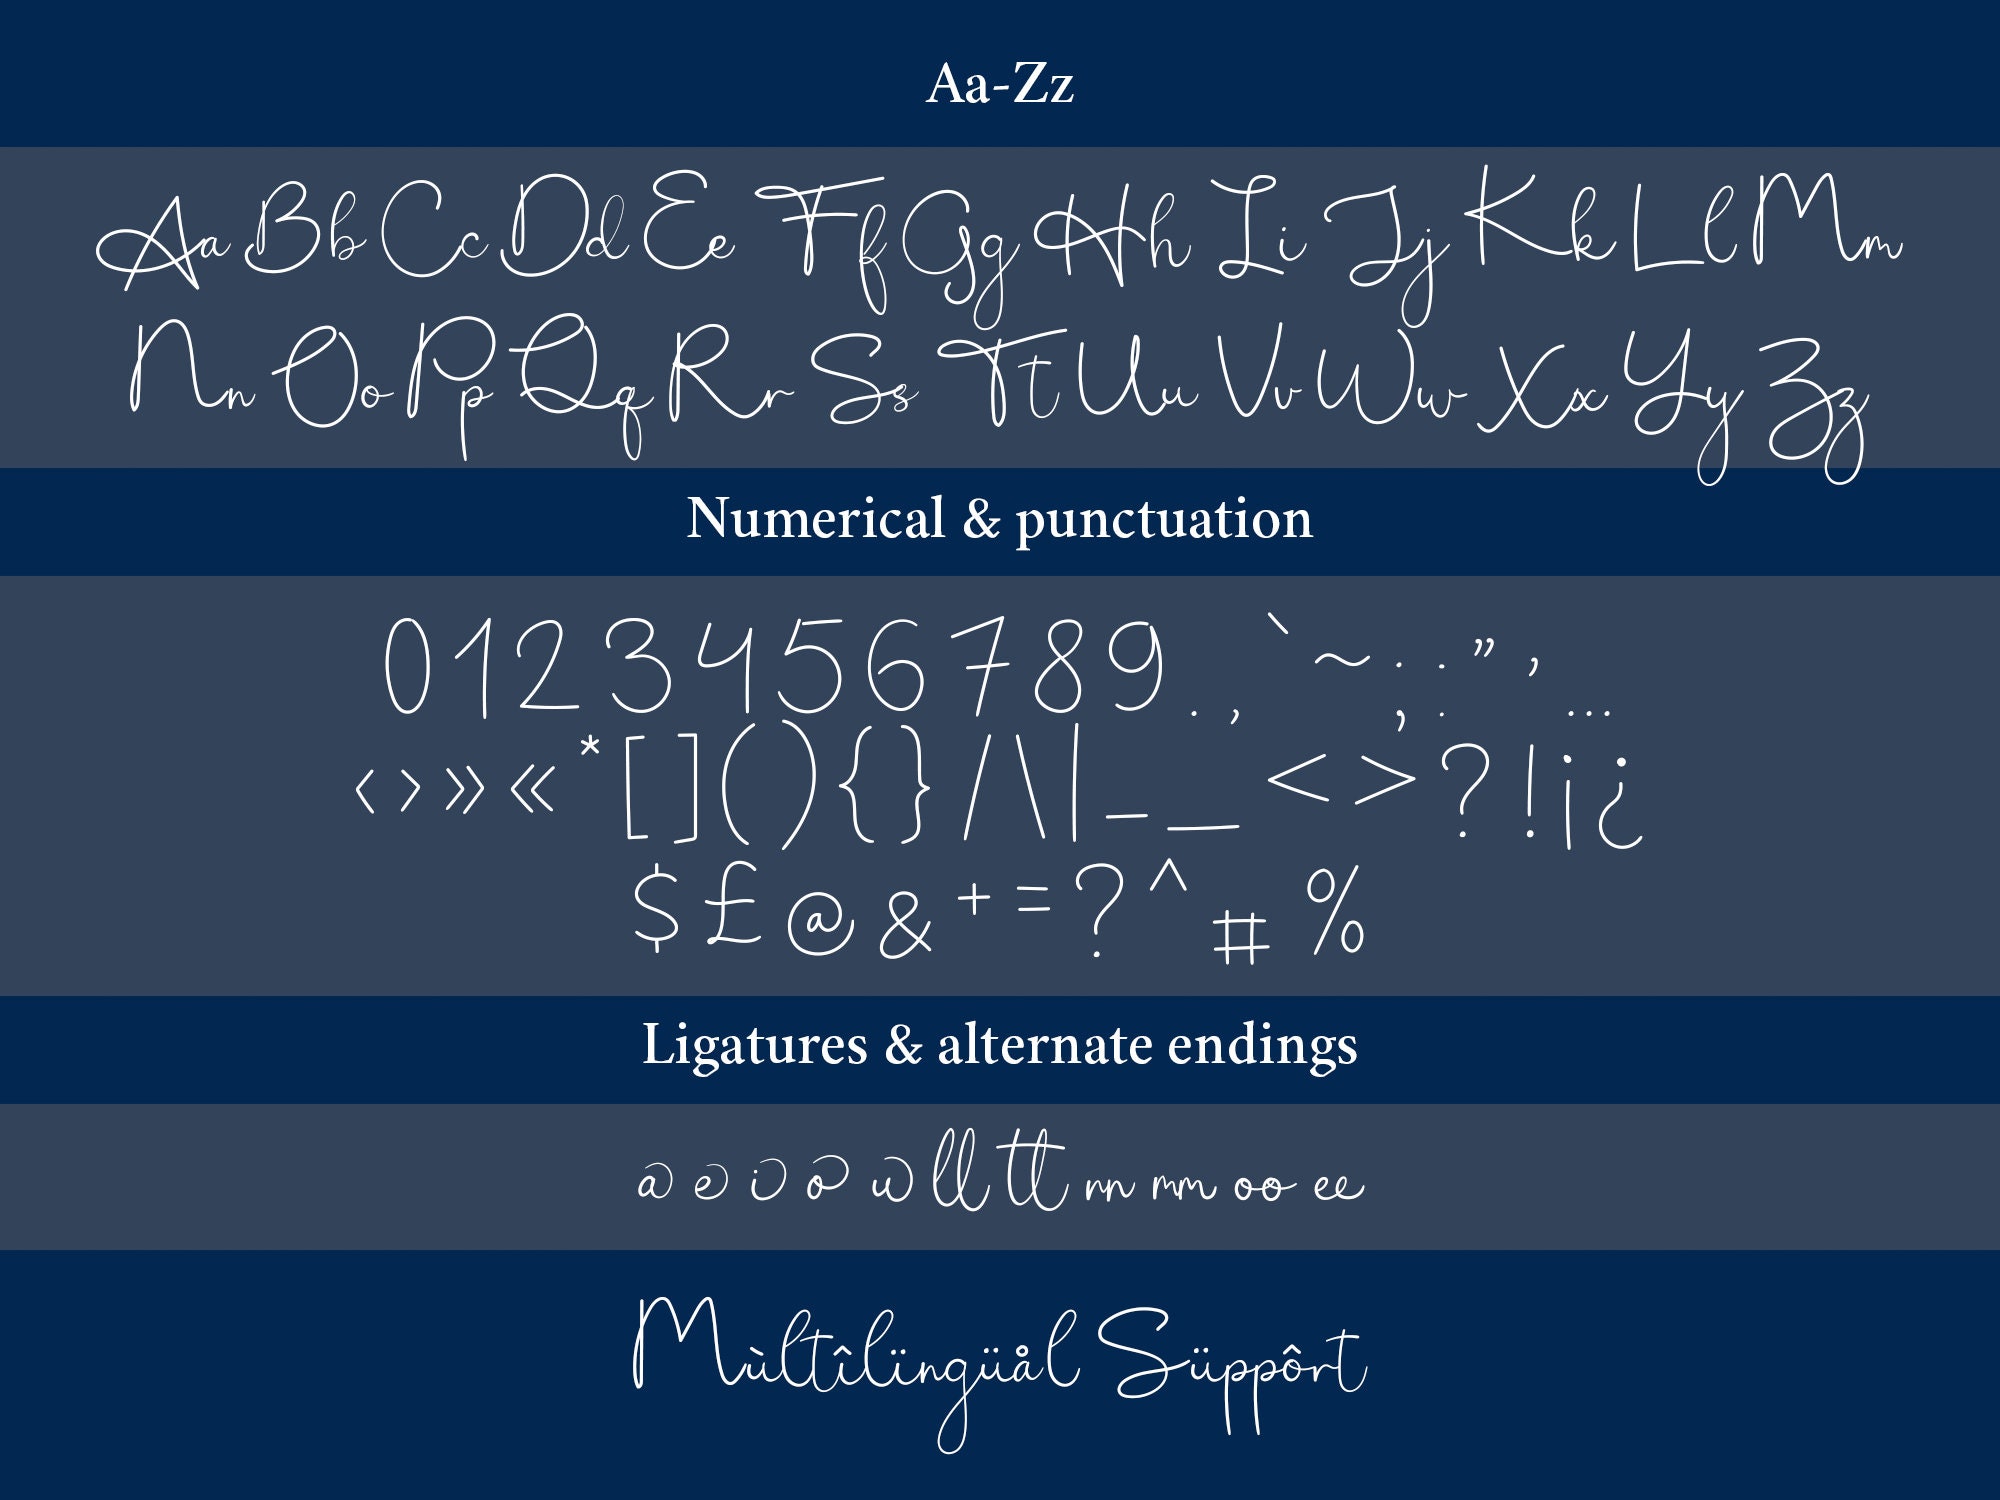 Aa-Zz
Aa Bb Cc Dd Ee Ff Gg Hh Ii Jj Kk Ll Mm
Nn Oo Pp Qq Rr Ss Tt Uu Vv Ww Xx Yy Zz
Numerical & punctuation
0 1 2 3 4 5 6 7 8 9 . , ` ~ ; : ” ’ …
‹ › » « * [ ] ( ) { } / \ | – _ < > ? ! ¡ ¿
$ £ @ & + = ? ^ # %
Ligatures & alternate endings
a e i o w ll tt nn mm oo ee
Mùltîlïngüål Süppôrt